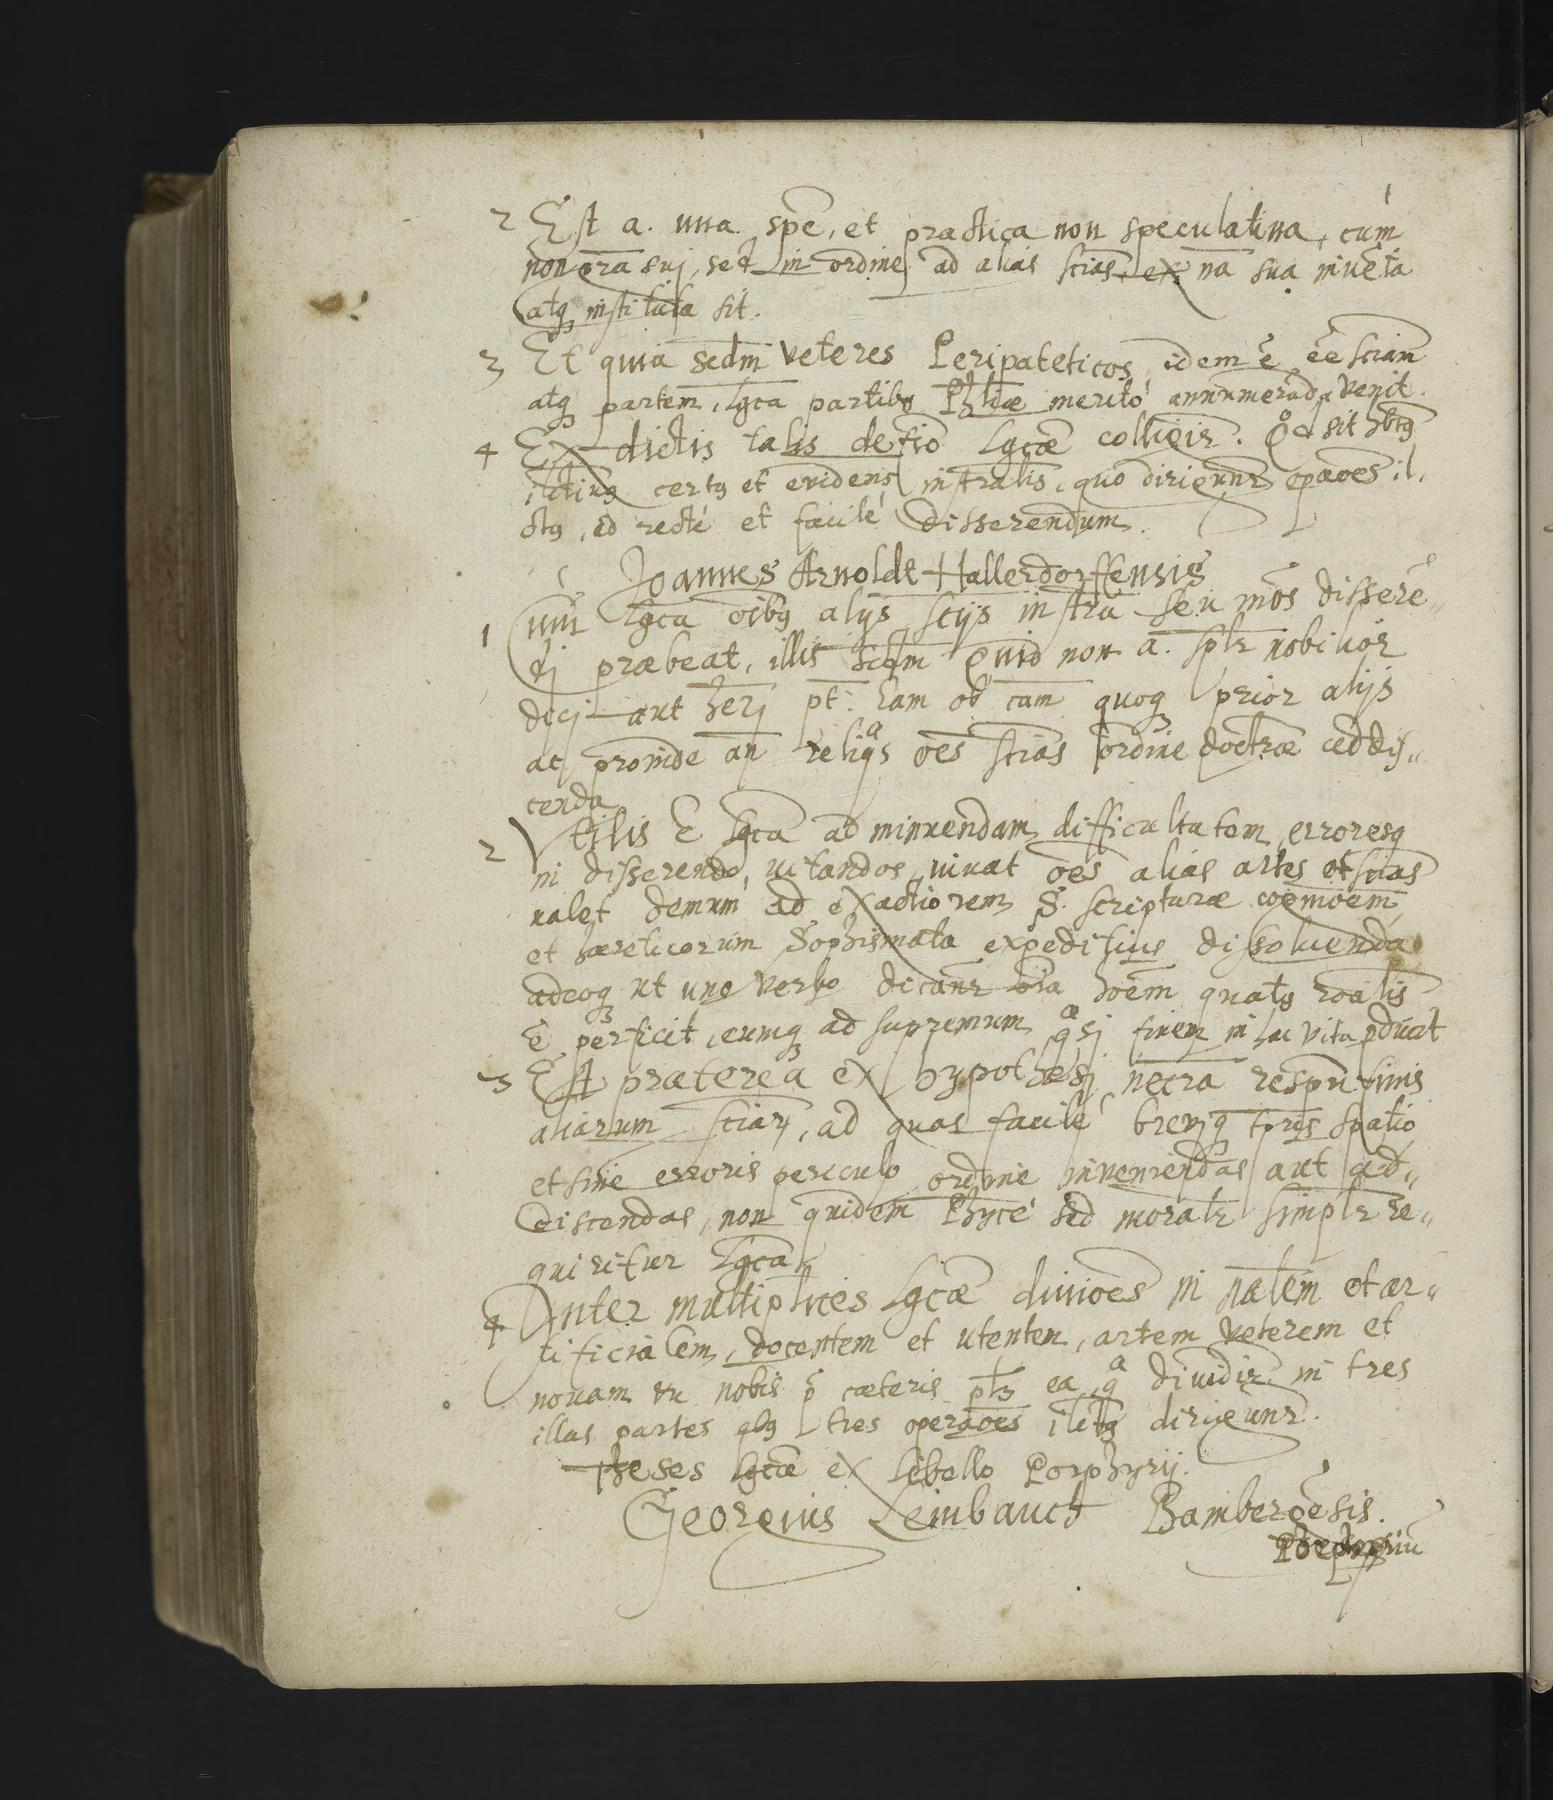 2 Est a. una spē, et practica non speculatina, cum
non gr̄a sui, sed in ordine ad alias sciās, ex nā sua inuēta
atq instituta sit.
3 Et quia sedm veteres Peripateticos idem ē ēe sciam
atq partem, Lgca partibq Phiae meritó annumerāda venit.
4 Ex dictis talis defio Lgcæ colligir. Qd sit hbtq
certq et evidens instralis, quo diriguntr opāoes il.
ctq, ad recté et facilé disserendum.
Joannes Arnoldt Hallerdorffensis
1 Cum Lgca oībq alijs scijs instra seu mōs disserē„
di præbeat, illis sedm quid non a. splr nobilior
dici aut heri pt. Eam ob cam quoq prior alijs
ac proinde an reliqas oēs sciās ordine doctræ addis„
cenda
2 Vtilis ē Lgca ad minuendam difficultatem, erroresq
in disserendo, uitandos, iuuat oēs alias artes et sciās
ualet demum ad exactiorem S. scripturæ cogniōem,
et hæreticorum Sophismata expeditius dissoluenda
adeoq ut uno verbo dicantr oīa hoēm quatq roālis
ē perficit, eumq ad supremum qasi finem in hac vita pducit
3 Est præterea ex hypothesi necra respu finis
aliarum sciarum, ad quas facilé breviq tpris spatio
et sine erroris periculo ordine inueniendas aut ad„
discendas, non quidem Phycé sed moralr simplr re„
quiritur Lgca
4 Inter multiplices Lgcæ diuiōes in nālem et ar„
tificialem, docentem et utentem, artem veterem et
nouam uu nobis p cæteris plz ea, qa diuidir in tres
illas partes qbq tres operāoes iltq diriguntr.
Theses Lgcæ ex libello Porphyrij.
Georgius Leinbauch Bambergēsis.